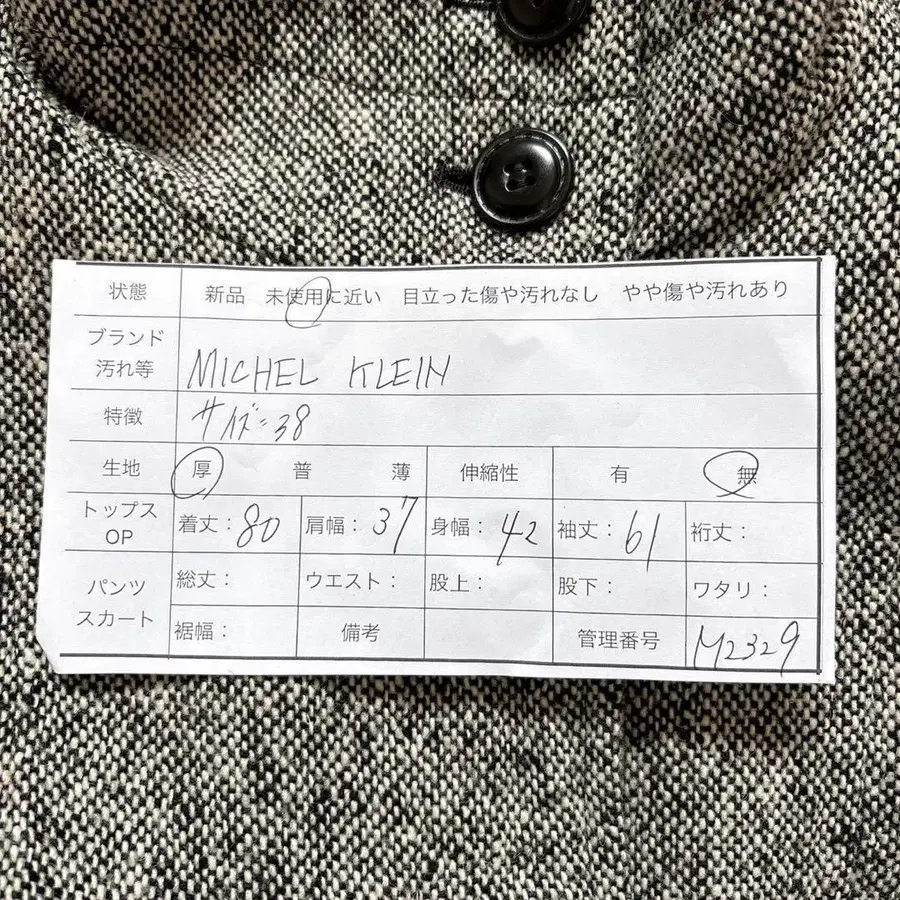 状態 新品 未使用に近い 目立った傷や汚れなし やや傷や汚れあり
ブランド
汚れ等 MICHEL KLEIN
特徴 サイズ:38
生地 厚 普 薄 伸縮性 有 無
トップス
OP 着丈:80 肩幅:37 身幅:42 袖丈:61 裄丈:
パンツ
スカート 総丈: ウエスト: 股上: 股下: ワタリ:
裾幅: 備考 管理番号 M2329